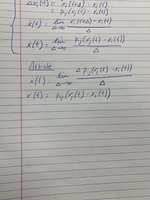 Δxᵢ(t) = xᵢ(t+Δ) - xᵢ(t)
= Pᵢⱼ(xⱼ(t) - xᵢ(t))
ẋ(t) = lim Δ→∞ xᵢ(t+Δ) - xᵢ(t) / Δ
ẋ(t) = lim Δ→∞ Pᵢⱼ(xⱼ(t) - xᵢ(t)) / Δ
Article
ẋ(t) = lim Δ→∞ Δ Pᵢⱼ(xⱼ(t) - xᵢ(t)) / Δ
ẋ(t) = Pᵢⱼ(xⱼ(t) - xᵢ(t))